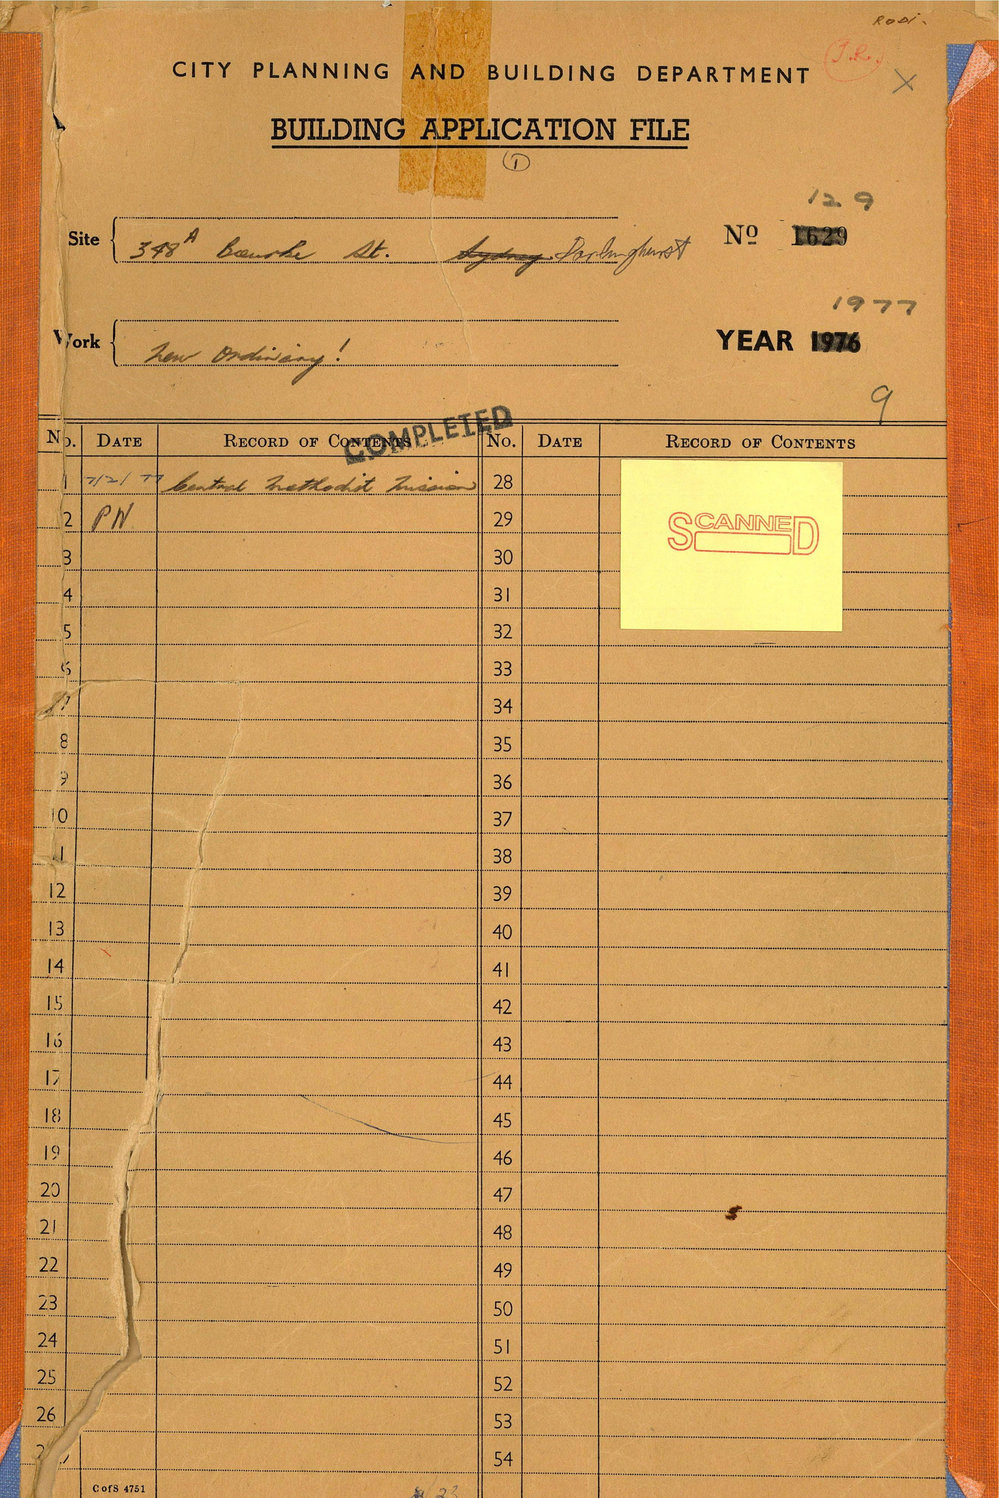 RODI.
(J.R.)
X
CITY PLANNING AND BUILDING DEPARTMENT
BUILDING APPLICATION FILE
1
129
Site 348A Bourke St. Sydney Darlinghurst No 1629
1977
Work New Ordinary! YEAR 1976
9
COMPLETED
No. DATE RECORD OF CONTENTS No. DATE RECORD OF CONTENTS
1 7/2/77 Central Methodist Mission 28
SCANNED
2 PN 29
3 30
4 31
5 32
6 33
7 34
8 35
9 36
10 37
11 38
12 39
13 40
14 41
15 42
16 43
17 44
18 45
19 46
20 47
21 48
22 49
23 50
24 51
25 52
26 53
27 54
C of S 4751